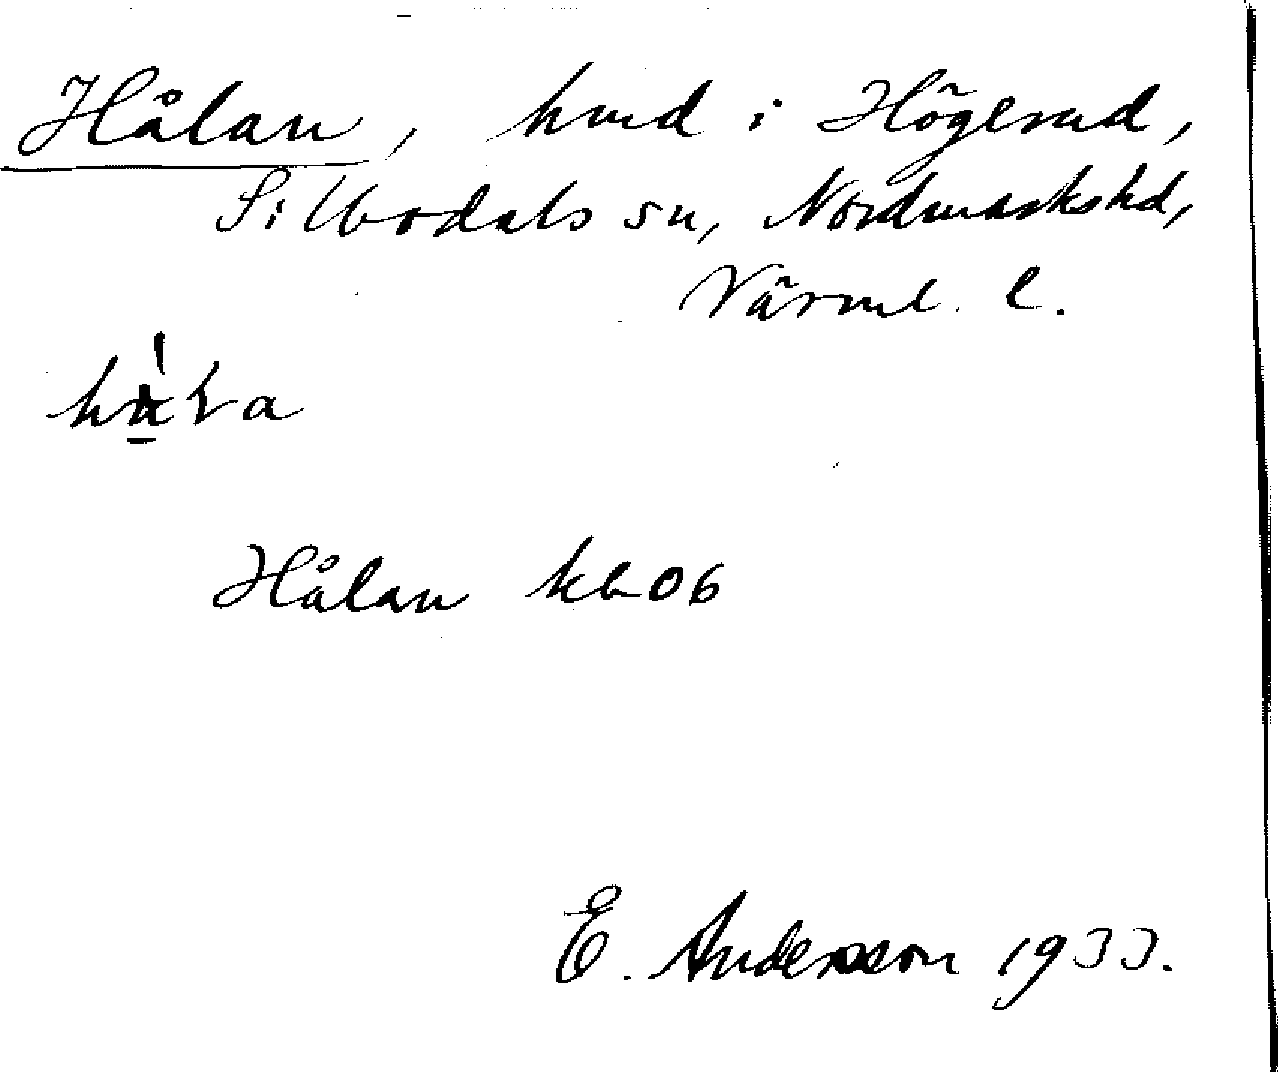 Hålan, hmd i Högerud,
Silbodals sn, Nordmarks hd,
Värml. l.
Hålan kb 06
E. Andersson 1933.